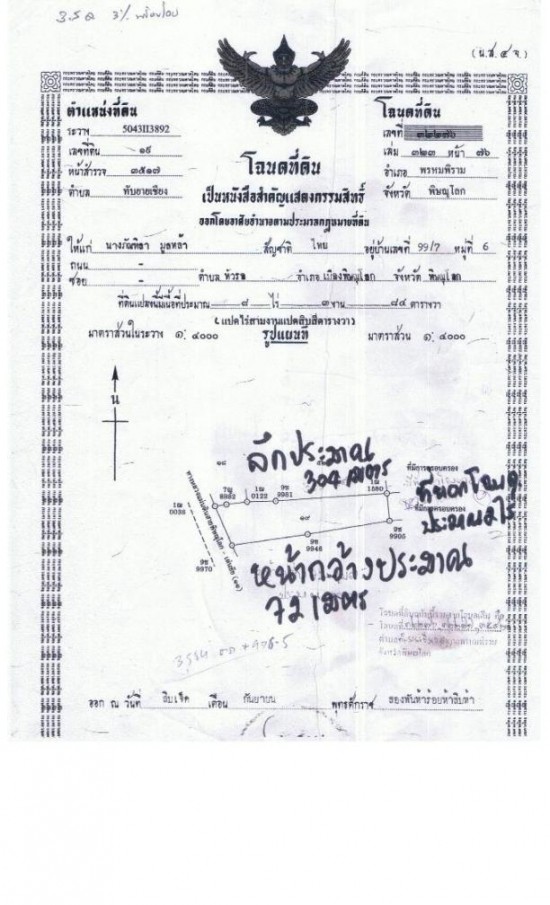 3% พร้อมโอน
(น.ส. ๔ จ.)
ตำแหน่งที่ดิน
ระวาง 5043II3892
เลขที่ดิน ๑๙
หน้าสำรวจ ๓๕๑๗
ตำบล ทับยายเชียง
โฉนดที่ดิน
เลขที่ ๓๒๒๗๖
เล่ม ๓๒๓ หน้า ๗๖
อำเภอ พรหมพิราม
จังหวัด พิษณุโลก
โฉนดที่ดิน
เป็นหนังสือสำคัญแสดงกรรมสิทธิ์
ออกโดยอาศัยอำนาจตามประมวลกฎหมายที่ดิน
ให้แก่ สัญชาติ ไทย อยู่บ้านเลขที่ 99/7 หมู่ที่ 6
ถนน -
ซอย - ตำบล หัวรอ อำเภอ เมืองพิษณุโลก จังหวัด พิษณุโลก
ที่ดินแปลงนี้มีเนื้อที่ประมาณ ๘ ไร่ ๓ งาน ๘๔ ตารางวา
(แปดไร่สามงานแปดสิบสี่ตารางวา)
มาตราส่วนในระวาง ๑: ๔๐๐๐ รูปแผนที่ มาตราส่วน ๑: ๔๐๐๐
น
ลึกประมาณ
304 เมตร
๑๘
ที่มีการครอบครอง
ที่นอกโฉนด
ประมาณ ไร่
1ฒ
0038
7ญ
8982
1ฒ
0122
9ช
9961
1ฒ
1580
๑๙
9ช
9946
9ช
9905
9ช
9970
หน้ากว้างประมาณ
72 เมตร
ออก ณ วันที่ สิบเจ็ด เดือน กันยายน พุทธศักราช สองพันห้าร้อยห้าสิบห้า